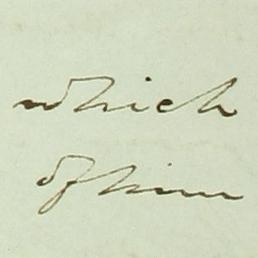 which
of him